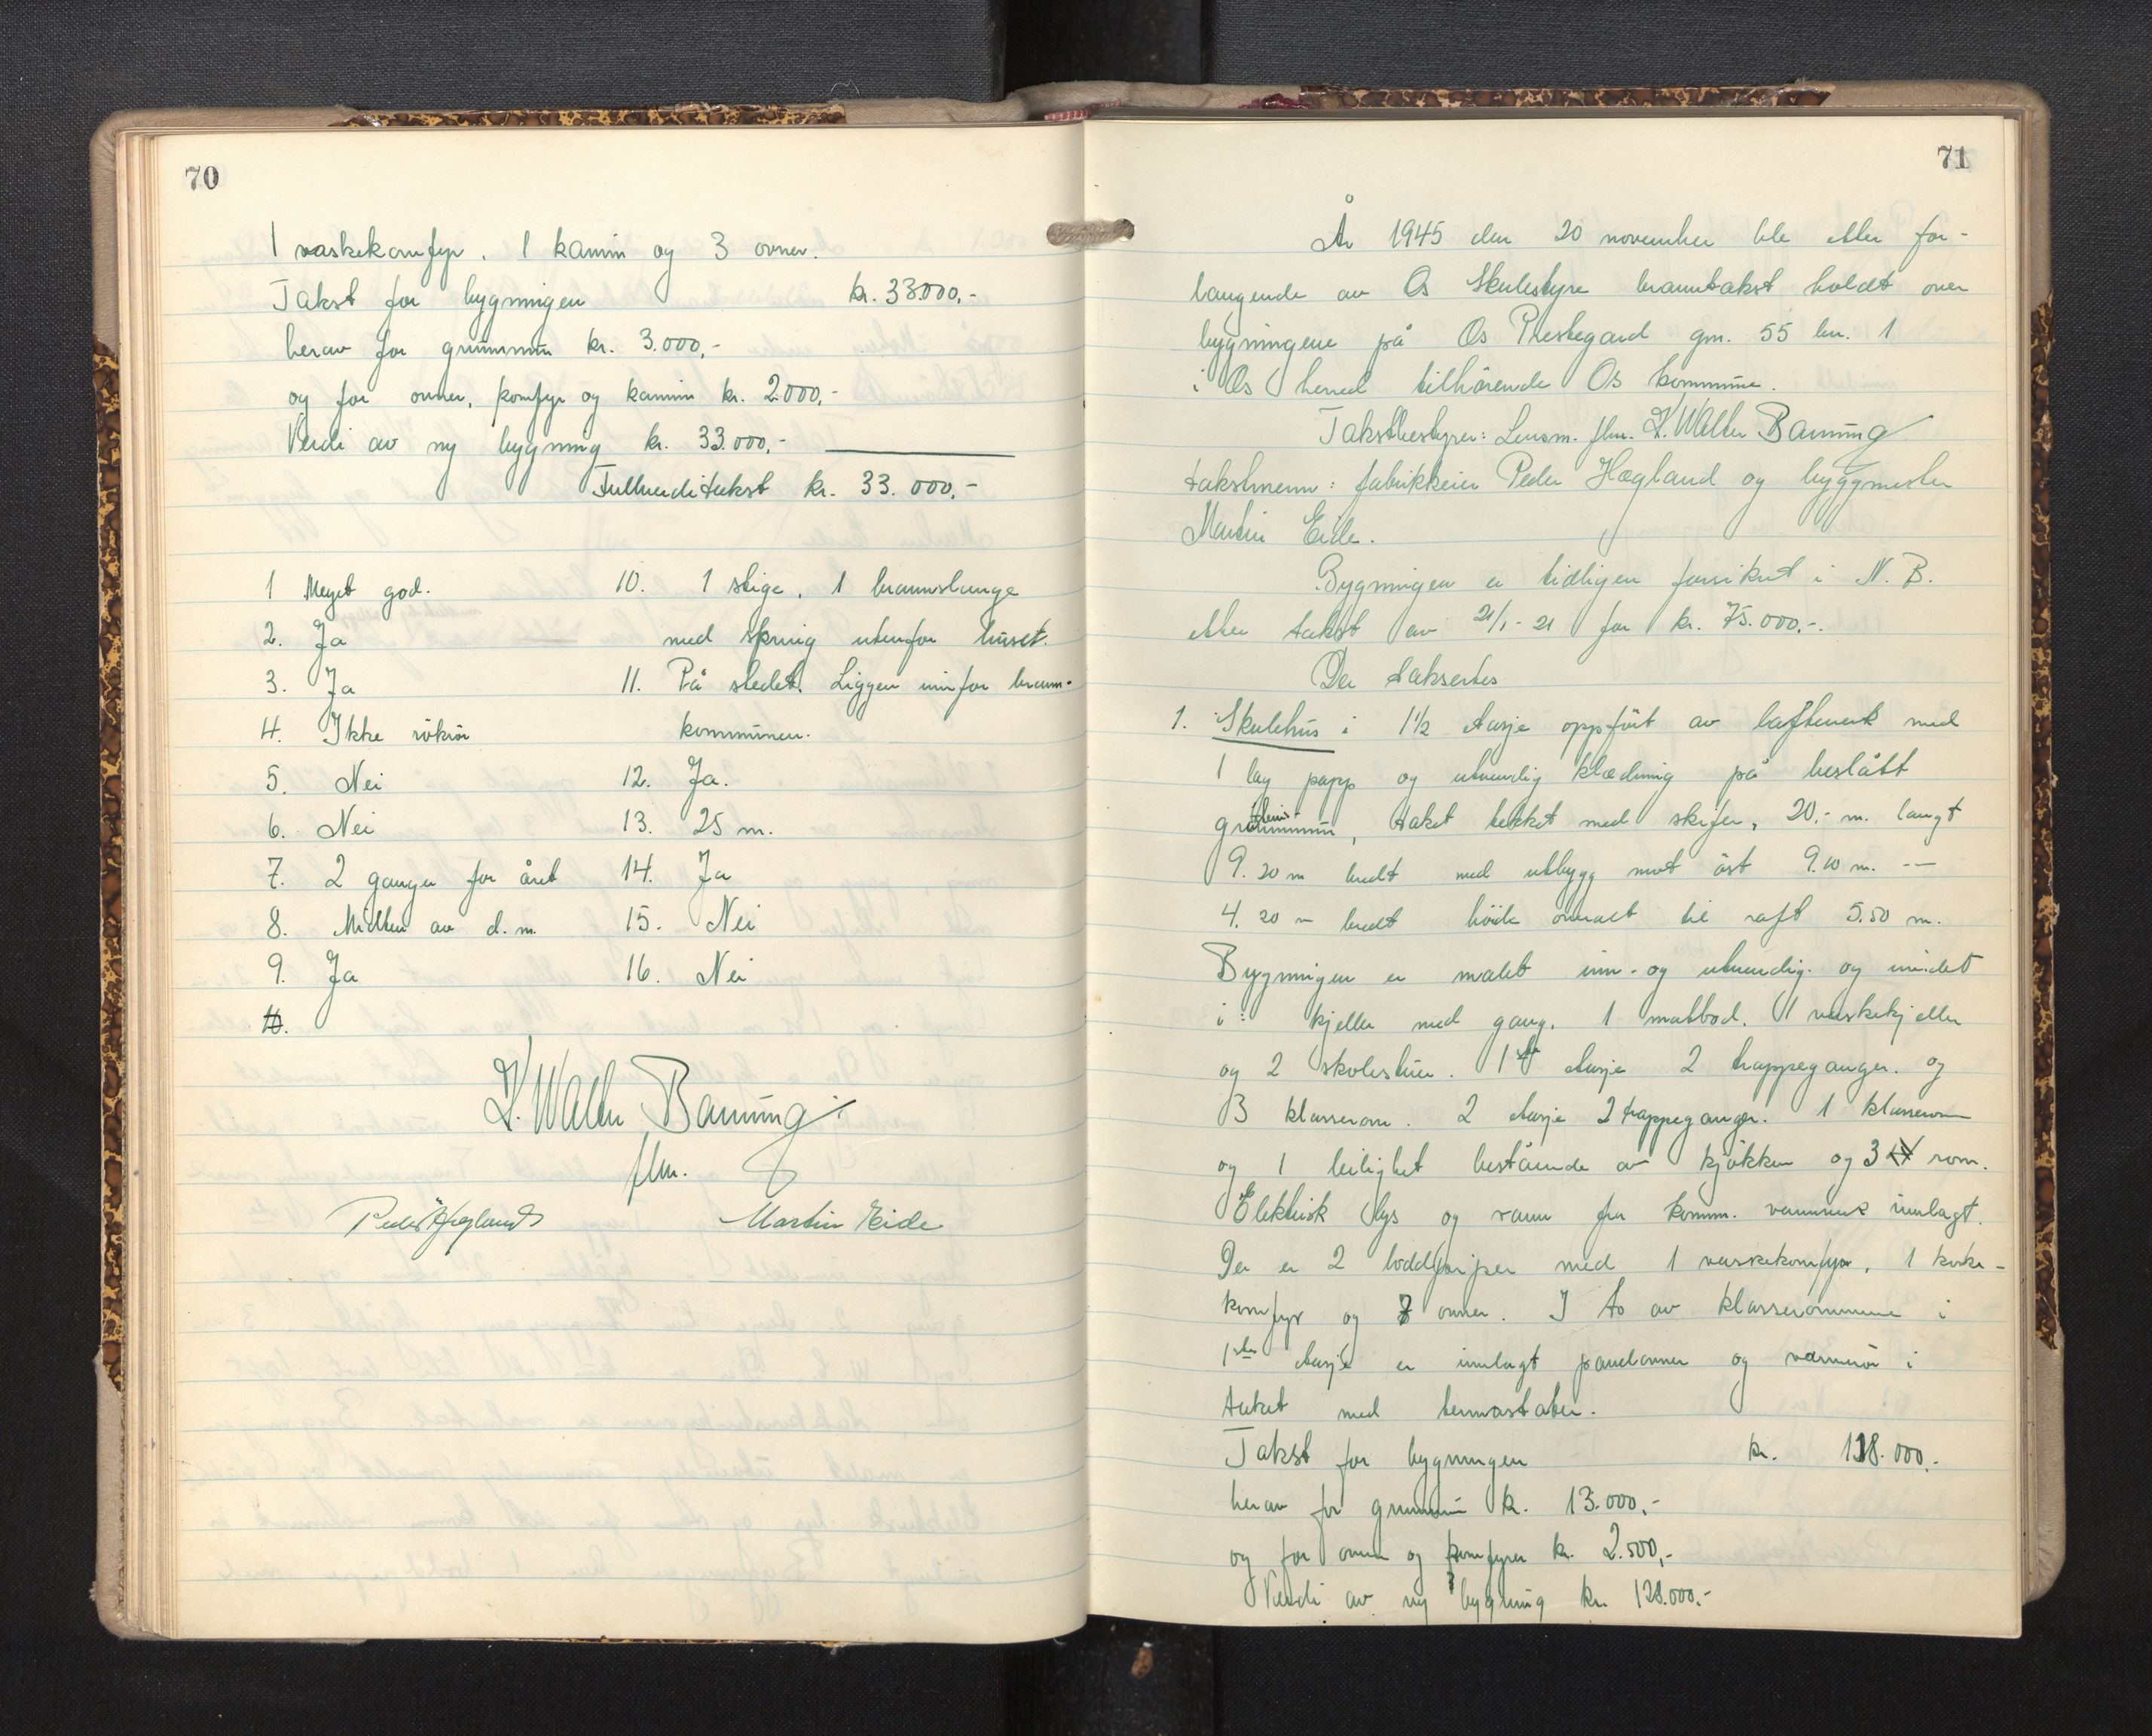 70
1 vaskekomfyr. 1 kamin og 3 ovner.
Takst for bygningen kr. 33000,-
herav for grunnmur kr. 3.000,-
og for ovner, komfyr og kamin kr. 2000,-
Verdi av ny bygning kr. 33.000,-
Fullverditakst kr. 33.000,-
1 Meget god.
2. Ja
3. Ja
4. Ikke rökrör
5. Nei
6. Nei
7. 2 ganger for året
8. Midten av d.m.
9. Ja
10.
10. 1 stige, 1 brannslange
med spring utenfor huset.
11. På stedet. Ligger innfor brann-
kommunen.
12. Ja.
13. 25 m.
14. Ja
15. Nei
16. Nei
K. Walter Banning
flm.
Peder Hægland Martin Eide
71
År 1945 den 20 november ble etter for-
langende av Os Skulestyre branntakst holdt over
bygningene på Os Prestegard gnr. 55 bn. 1
i Os herred tilhörende Os kommune.
Takstbestyrer: Lensm. flm. K. Walter Banning
takstmenn: fabrikkeier Peder Hægland og byggmester
Martin Eide.
Bygningen er tidligen forsikret i N. B.
etter takst av 21/1-21 for kr. 75.000.-.
Der taksertes
1. Skulehus i 1½ etasje oppfört av lafteverk med
1 lag papp og utvendig klædning på beslått
grunnmur, taket tekket med skifer, 20,- m. langt
9.20 m bredt med utbygg mot öst 9.10 m. —
4.20 m bredt höide overalt til raft 5.50 m.
Bygningen er malt inn- og utvendig. og innredet
i: kjeller med gang. 1 matbod. 1 vaskekjeller
og 2 skolestuer. 1ste etasje 2 trappeganger. og
3 klasserom. 2 etasje 2 trappeganger. 1 klasserom
og 1 leilighet bestående av kjökken og 3 rom.
Elektrisk lys og vann fra komm. vannverk innlagt.
Der er 2 loddpiper med 1 vaskekomfyr, 1 koke-
komfyr og 7 ovner. I to av klasserommene i
1ste etasje er innlagt panelovner og varmerör i
taket med termostater.
Takst for bygningen kr. 118.000.-
herav for grunnmur kr. 13.000,-
og for ovner og komfyrer kr. 2.500,-
Verdi av ny bygning kr. 128.000.-